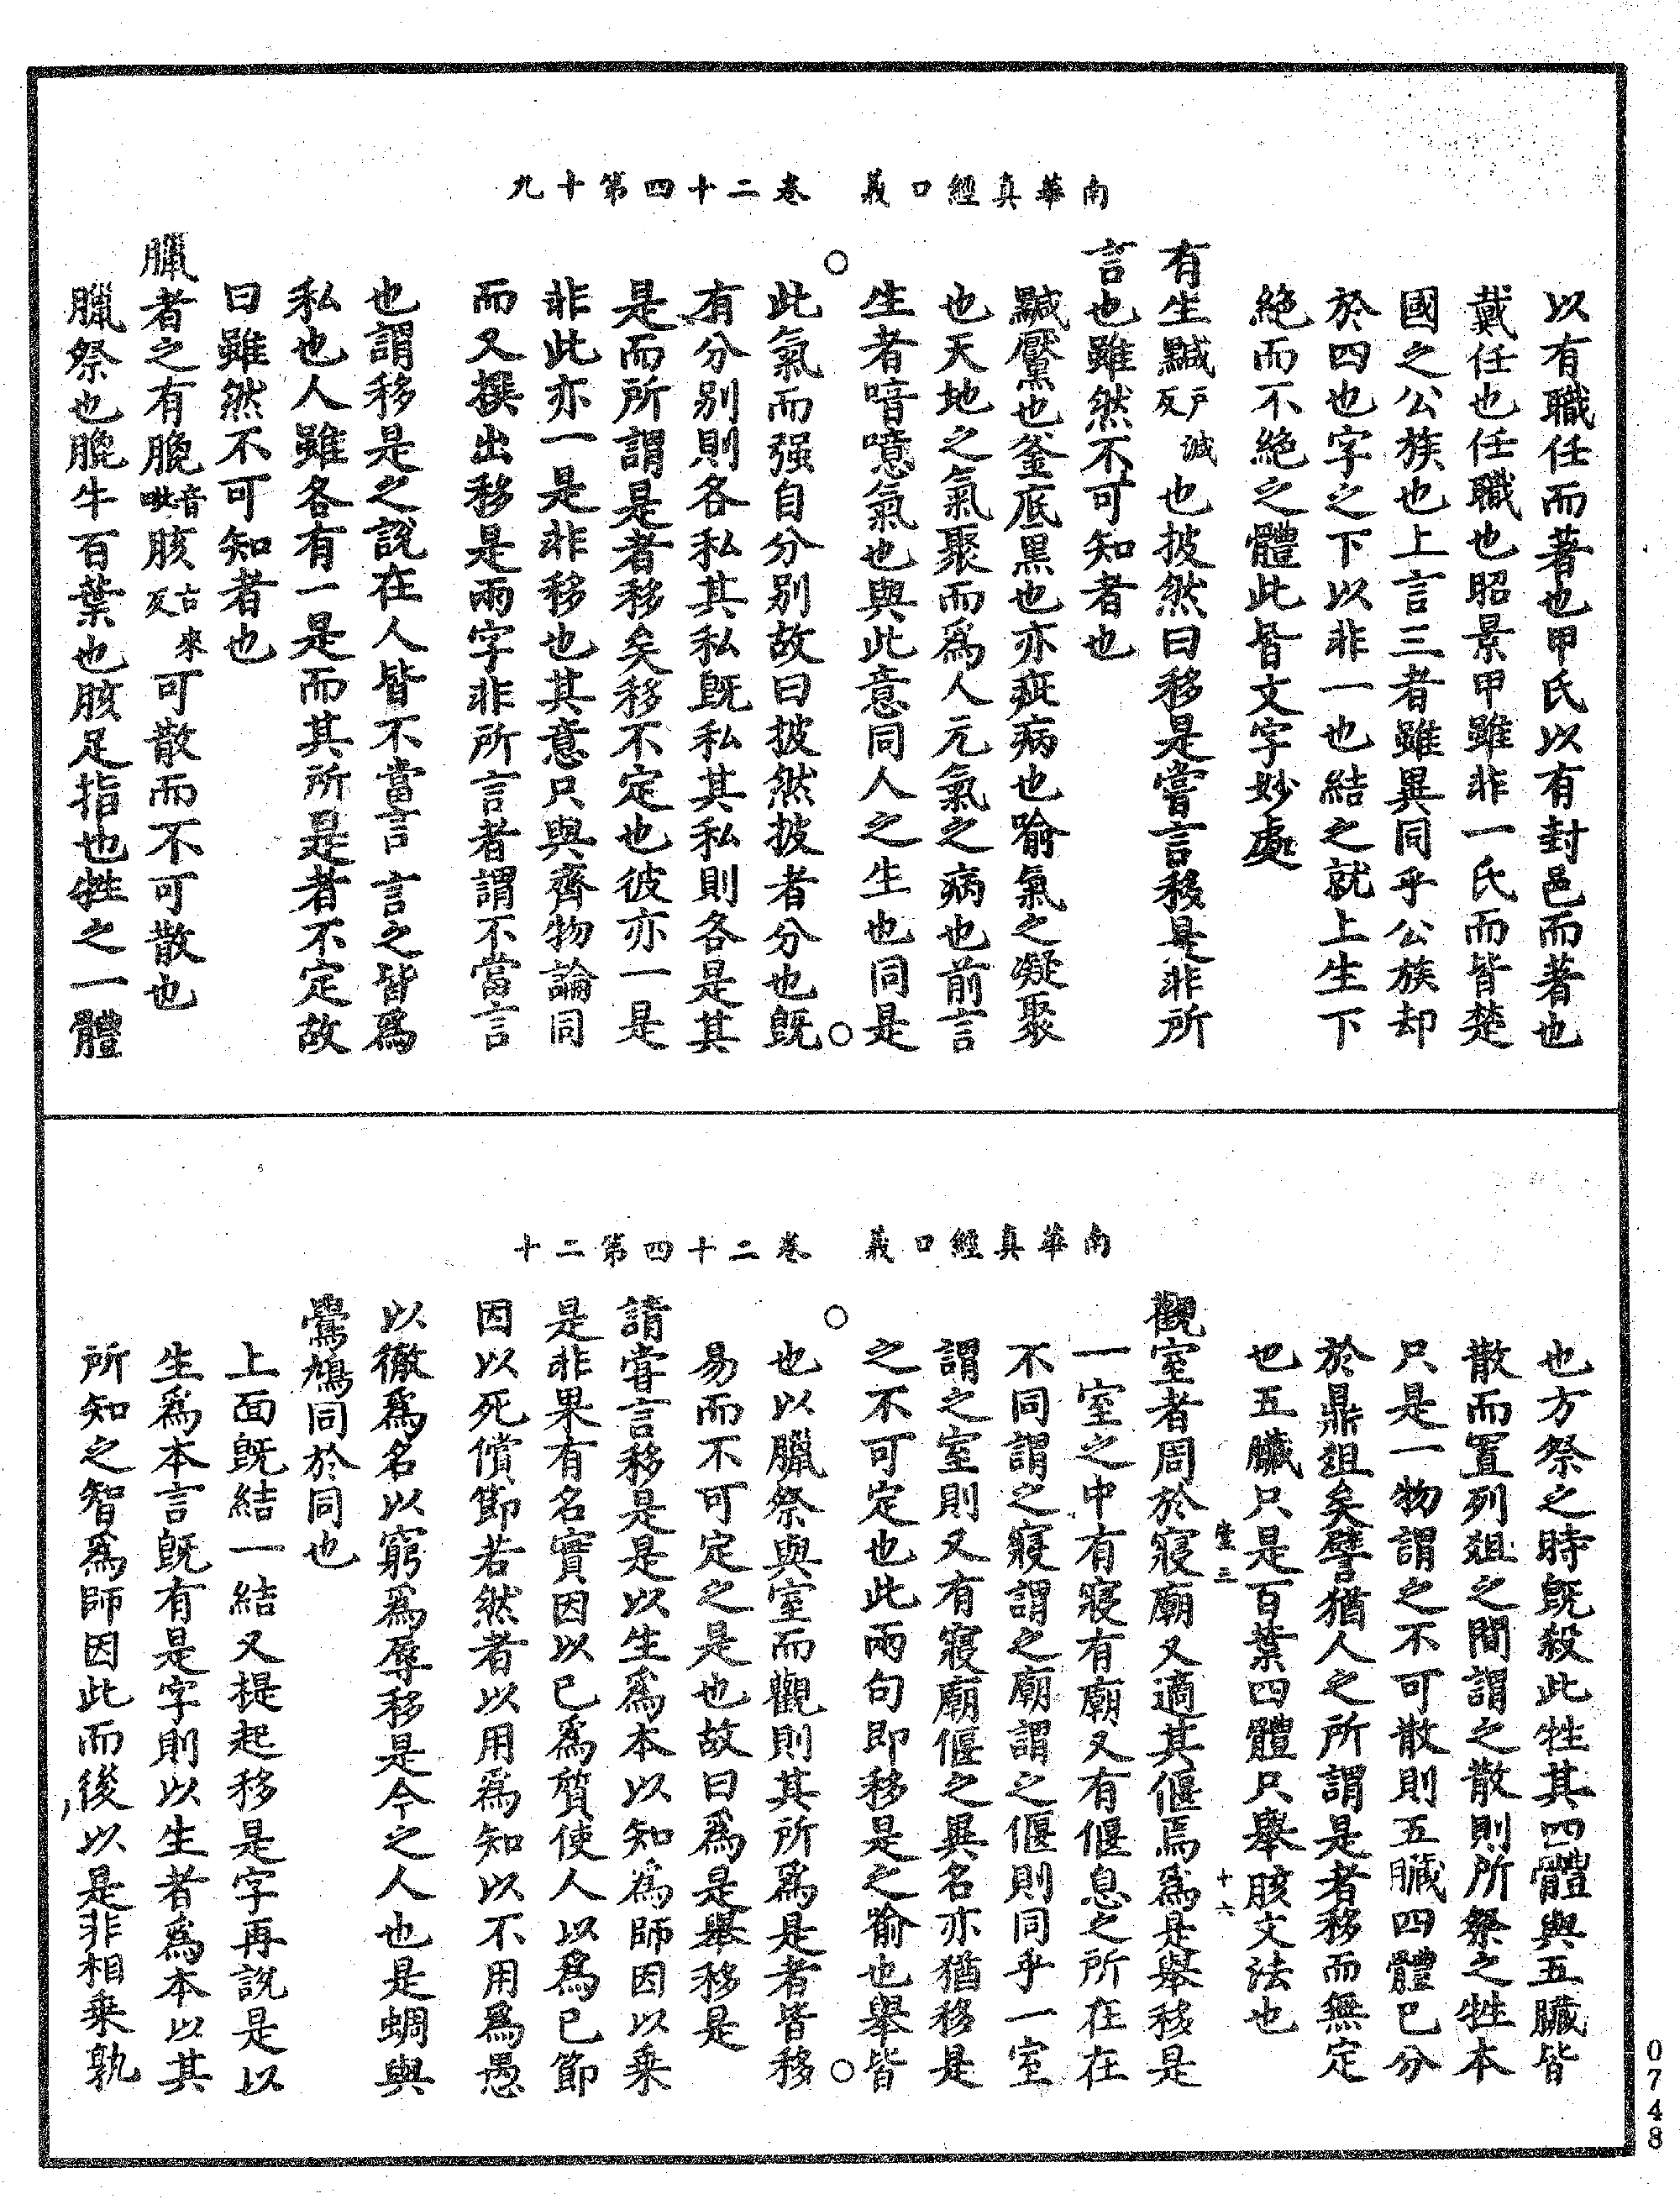 南華真經口義　卷二十四第十九
以有職任而著也甲氏以有封邑而著也
戴任也任職也昭景甲雖非一氏而皆楚
國之公族也上言三者雖異同乎公族却
於四也字之下以非一也結之就上生下
絕而不絕之體此皆文字妙處
有生黬戶減反也披然曰移是嘗言移是非所
言也雖然不可知者也
黬黶也釜底黑也亦疵病也喻氣之凝聚
也天地之氣聚而爲人元氣之病也前言
生者喑噫氣也與此意同人之生也同是
此氣而强自分别故曰披然披者分也旣
有分别則各私其私旣私其私則各是其
是而所謂是者移矣移不定也彼亦一是
非此亦一是非移也其意只與齊物論同
而又撰出移是兩字非所言者謂不當言
也謂移是之說在人皆不當言言之皆爲
私也人雖各有一是而其所是者不定故
曰雖然不可知者也
臘者之有膍音毗胲古來反可散而不可散也
臘祭也膍牛百葉也胲足指也牲之一體
南華真經口義　卷二十四第二十
也方祭之時旣殺此牲其四體與五臟皆
散而置列俎之間謂之散則所祭之牲本
只是一物謂之不可散則五臟四體已分
於鼎俎矣譬猶人之所謂是者移而無定
也五臟只是百葉四體只舉胲文法也
觀室者周於寢廟又適其偃焉爲是舉移是
一室之中有寢有廟又有偃息之所在在
不同謂之寢謂之廟謂之偃則同乎一室
謂之室則又有寢廟偃之異名亦猶移是
之不可定也此兩句即移是之喻也舉皆
也以臘祭與室而觀則其所爲是者皆移
易而不可定之是也故曰爲是舉移是
請嘗言移是是以生爲本以知爲師因以乘
是非果有名實因以己爲質使人以爲己節
因以死償節若然者以用爲知以不用爲愚
以徹爲名以窮爲辱移是今之人也是蜩與
鷽鳩同於同也
上面旣結一結又提起移是字再說是以
生爲本言旣有是字則以生者爲本以其
所知之智爲師因此而後以是非相乘孰
0748